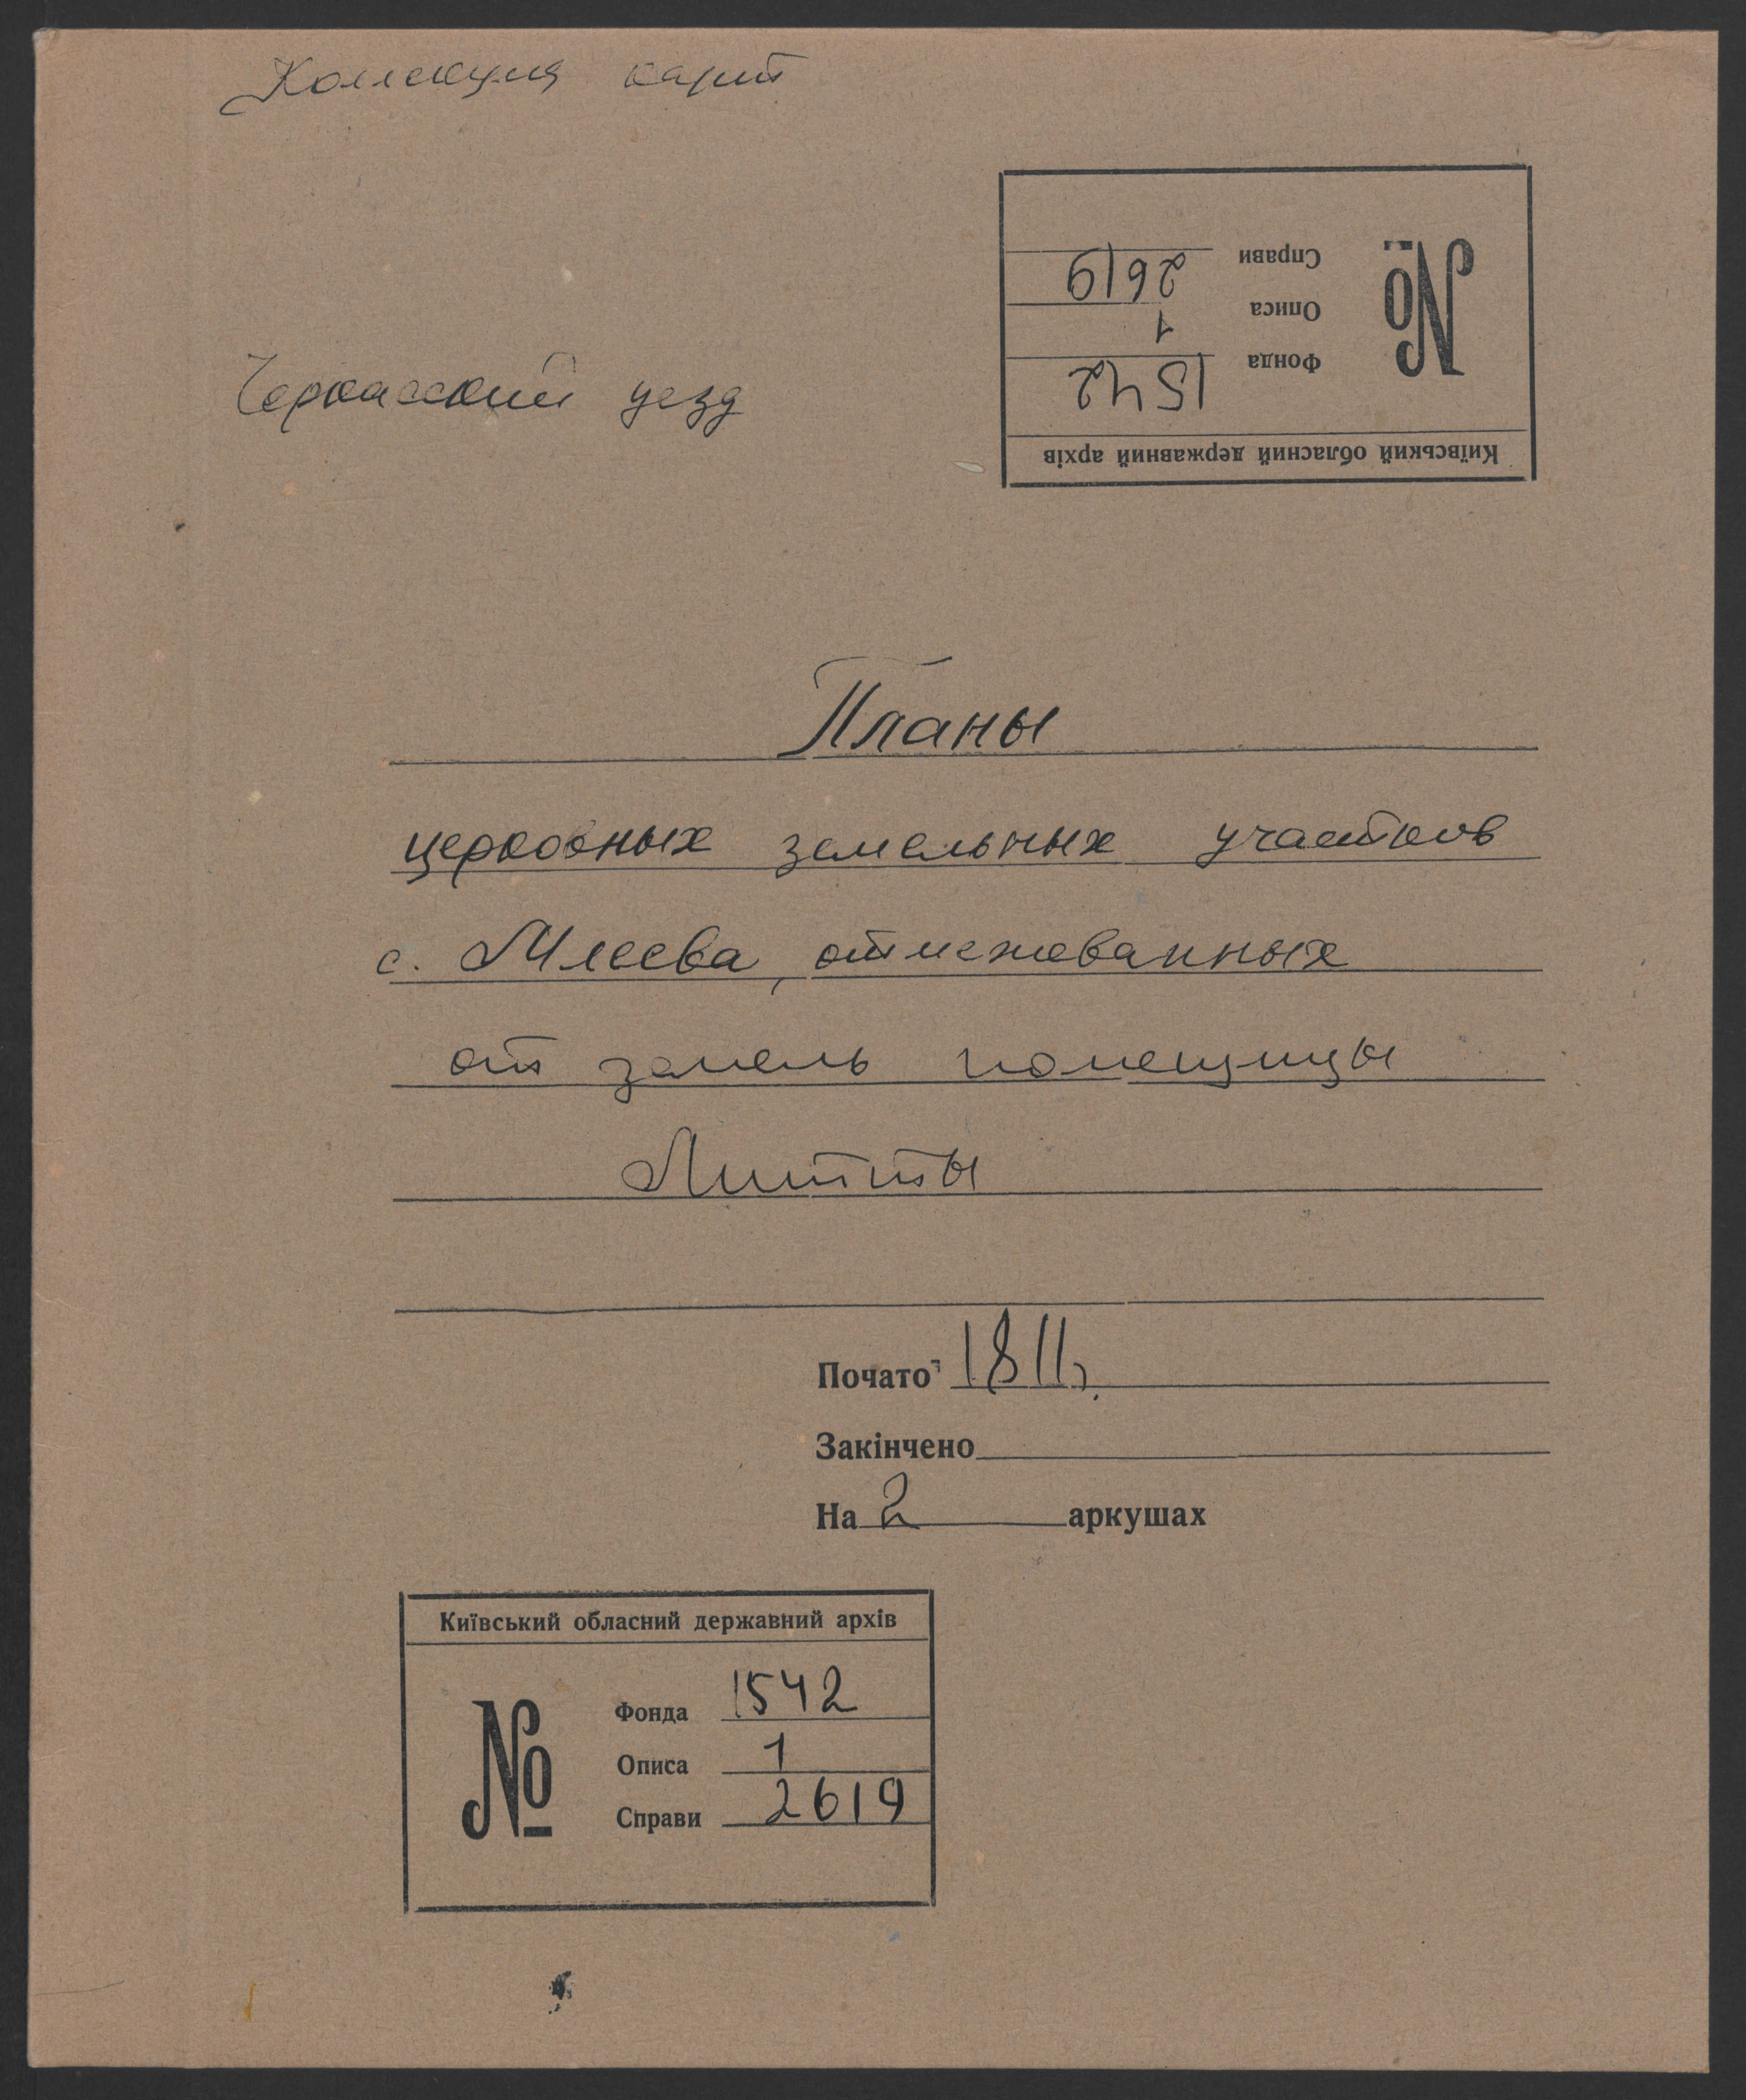 Коллекция карт
Справи 2619
Описа 1
Фонда 1542
№
Київський обласний державний архів
Черкасский уезд
Планы
церковных земельных участков
с. Млеева, отмежеванных
от земель помещицы
Литты
Почато 1811г.
Закінчено
На 2 аркушах
Київський обласний державний архів
№
Фонда 1542
Описа 1
Справи 2619